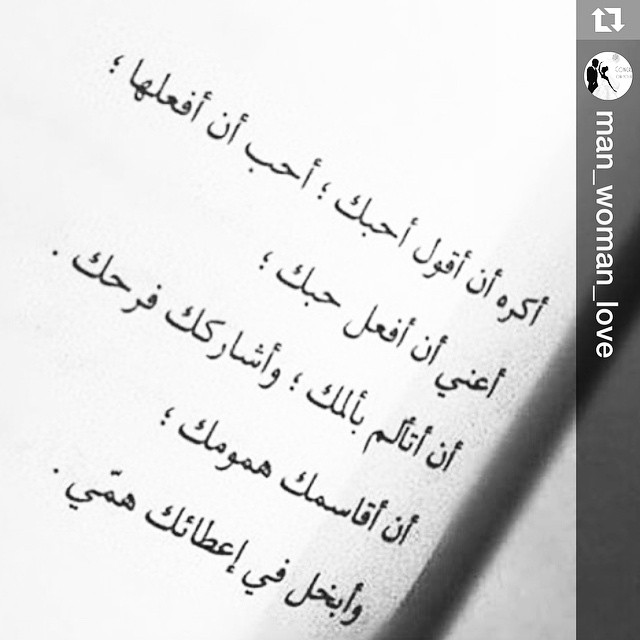 أكره أن أقول أحبك ؛ أحب أن أفعلها ؛
أعني أن أفعل حبك ؛
أن أتألم بألمك ؛ وأشاركك فرحك .
أن أقاسمك همومك ؛
وأبخل في إعطائك همّي .
man_woman_love